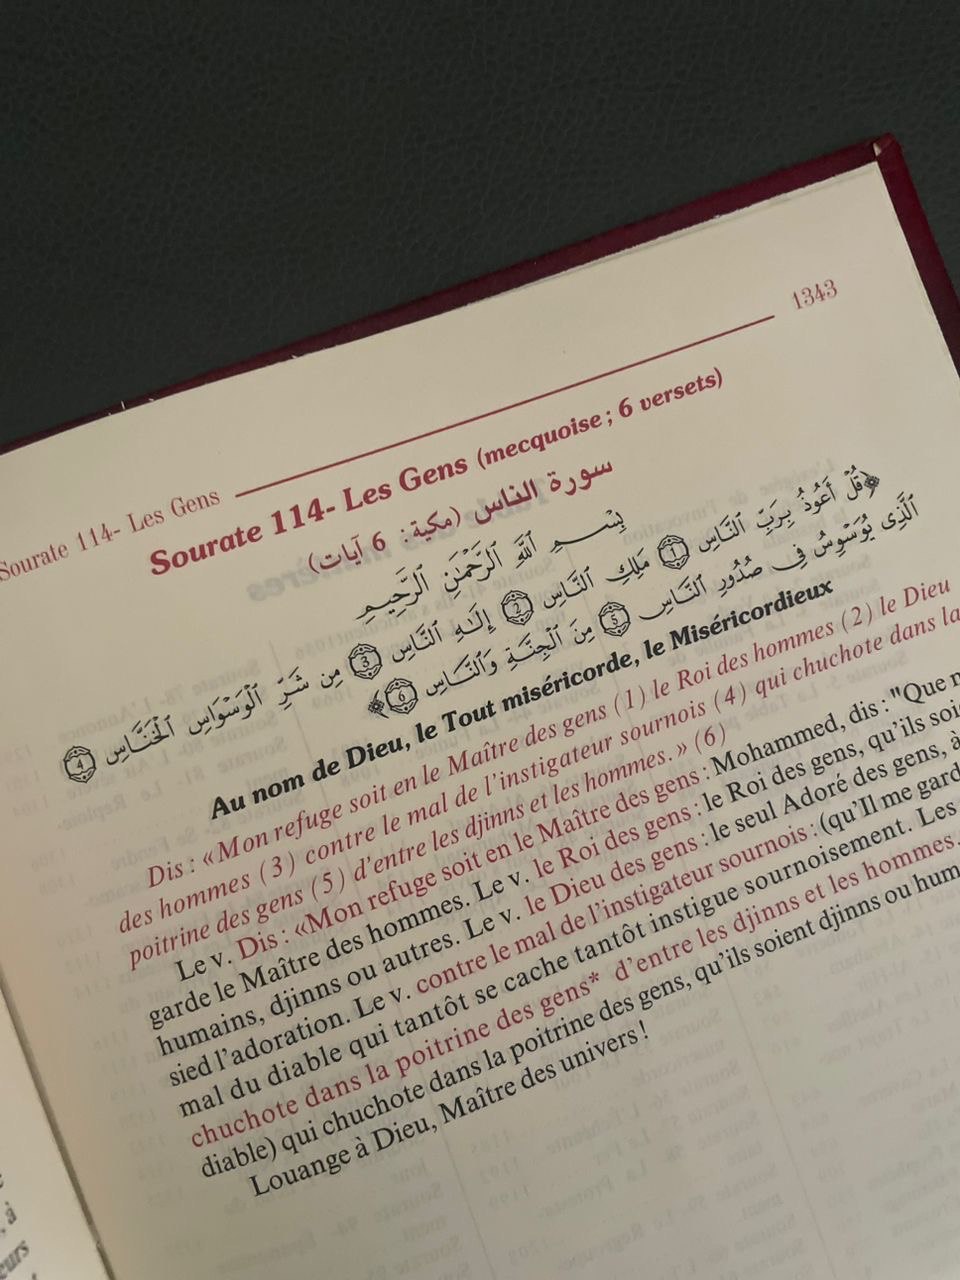 1343
Sourate 114- Les Gens
Sourate 114- Les Gens (mecquoise ; 6 versets)
سورة الناس (مكية: 6 آيات)
بِسْمِ اللَّهِ الرَّحْمَٰنِ الرَّحِيمِ
﴿قُلْ أَعُوذُ بِرَبِّ النَّاسِ 1 مَلِكِ النَّاسِ 2 إِلَٰهِ النَّاسِ 3 مِن شَرِّ الْوَسْوَاسِ الْخَنَّاسِ 4
الَّذِي يُوَسْوِسُ فِي صُدُورِ النَّاسِ 5 مِنَ الْجِنَّةِ وَالنَّاسِ 6﴾
Au nom de Dieu, le Tout miséricorde, le Miséricordieux
Dis : «Mon refuge soit en le Maître des gens (1) le Roi des hommes (2) le Dieu
des hommes (3) contre le mal de l'instigateur sournois (4) qui chuchote dans la
poitrine des gens (5) d'entre les djinns et les hommes. » (6)
Le v. Dis : «Mon refuge soit en le Maître des gens : Mohammed, dis : "Que
garde le Maître des hommes. Le v. le Roi des gens : le Roi des gens, qu'ils
humains, djinns ou autres. Le v. le Dieu des gens : le seul Adoré des gens, à
sied l'adoration. Le v. contre le mal de l'instigateur sournois : (qu'Il me
mal du diable qui tantôt se cache tantôt instigue sournoisement. Les
chuchote dans la poitrine des gens* d'entre les djinns et les hommes.
diable) qui chuchote dans la poitrine des gens, qu'ils soient djinns ou
Louange à Dieu, Maître des univers !